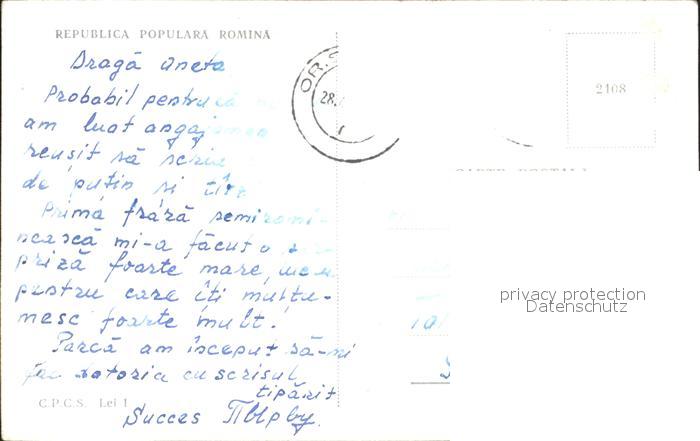 REPUBLICA POPULARĂ ROMÎNĂ
Dragă Aneta
Probabil pentru că
am luat angajamen
reușit să scriu
de puțin și tîrz
Prima frază semiromî-
nească mi-a făcut o sur-
priză foarte mare,
pentru care îți mulțu-
mesc foarte mult!
Parcă am început să-mi
fac datoria cu scrisul
tipărit
Succes
C.P.C.S. Lei 1
OR.
28.
2108
privacy protection
Datenschutz